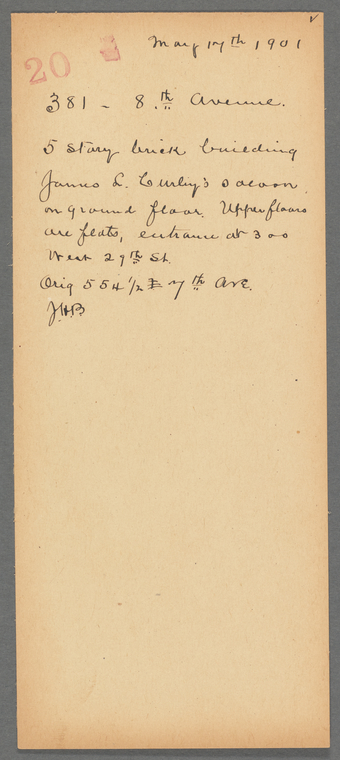 ✓
20
May 17th 1901
381 - 8th Avenue.
5 story brick building
James L. Curley's saloon
on ground floor. Upper floors
are flats, entrance at 300
West 29th St.
Orig 554 1/2 E 7th Ave.
J.H.B.